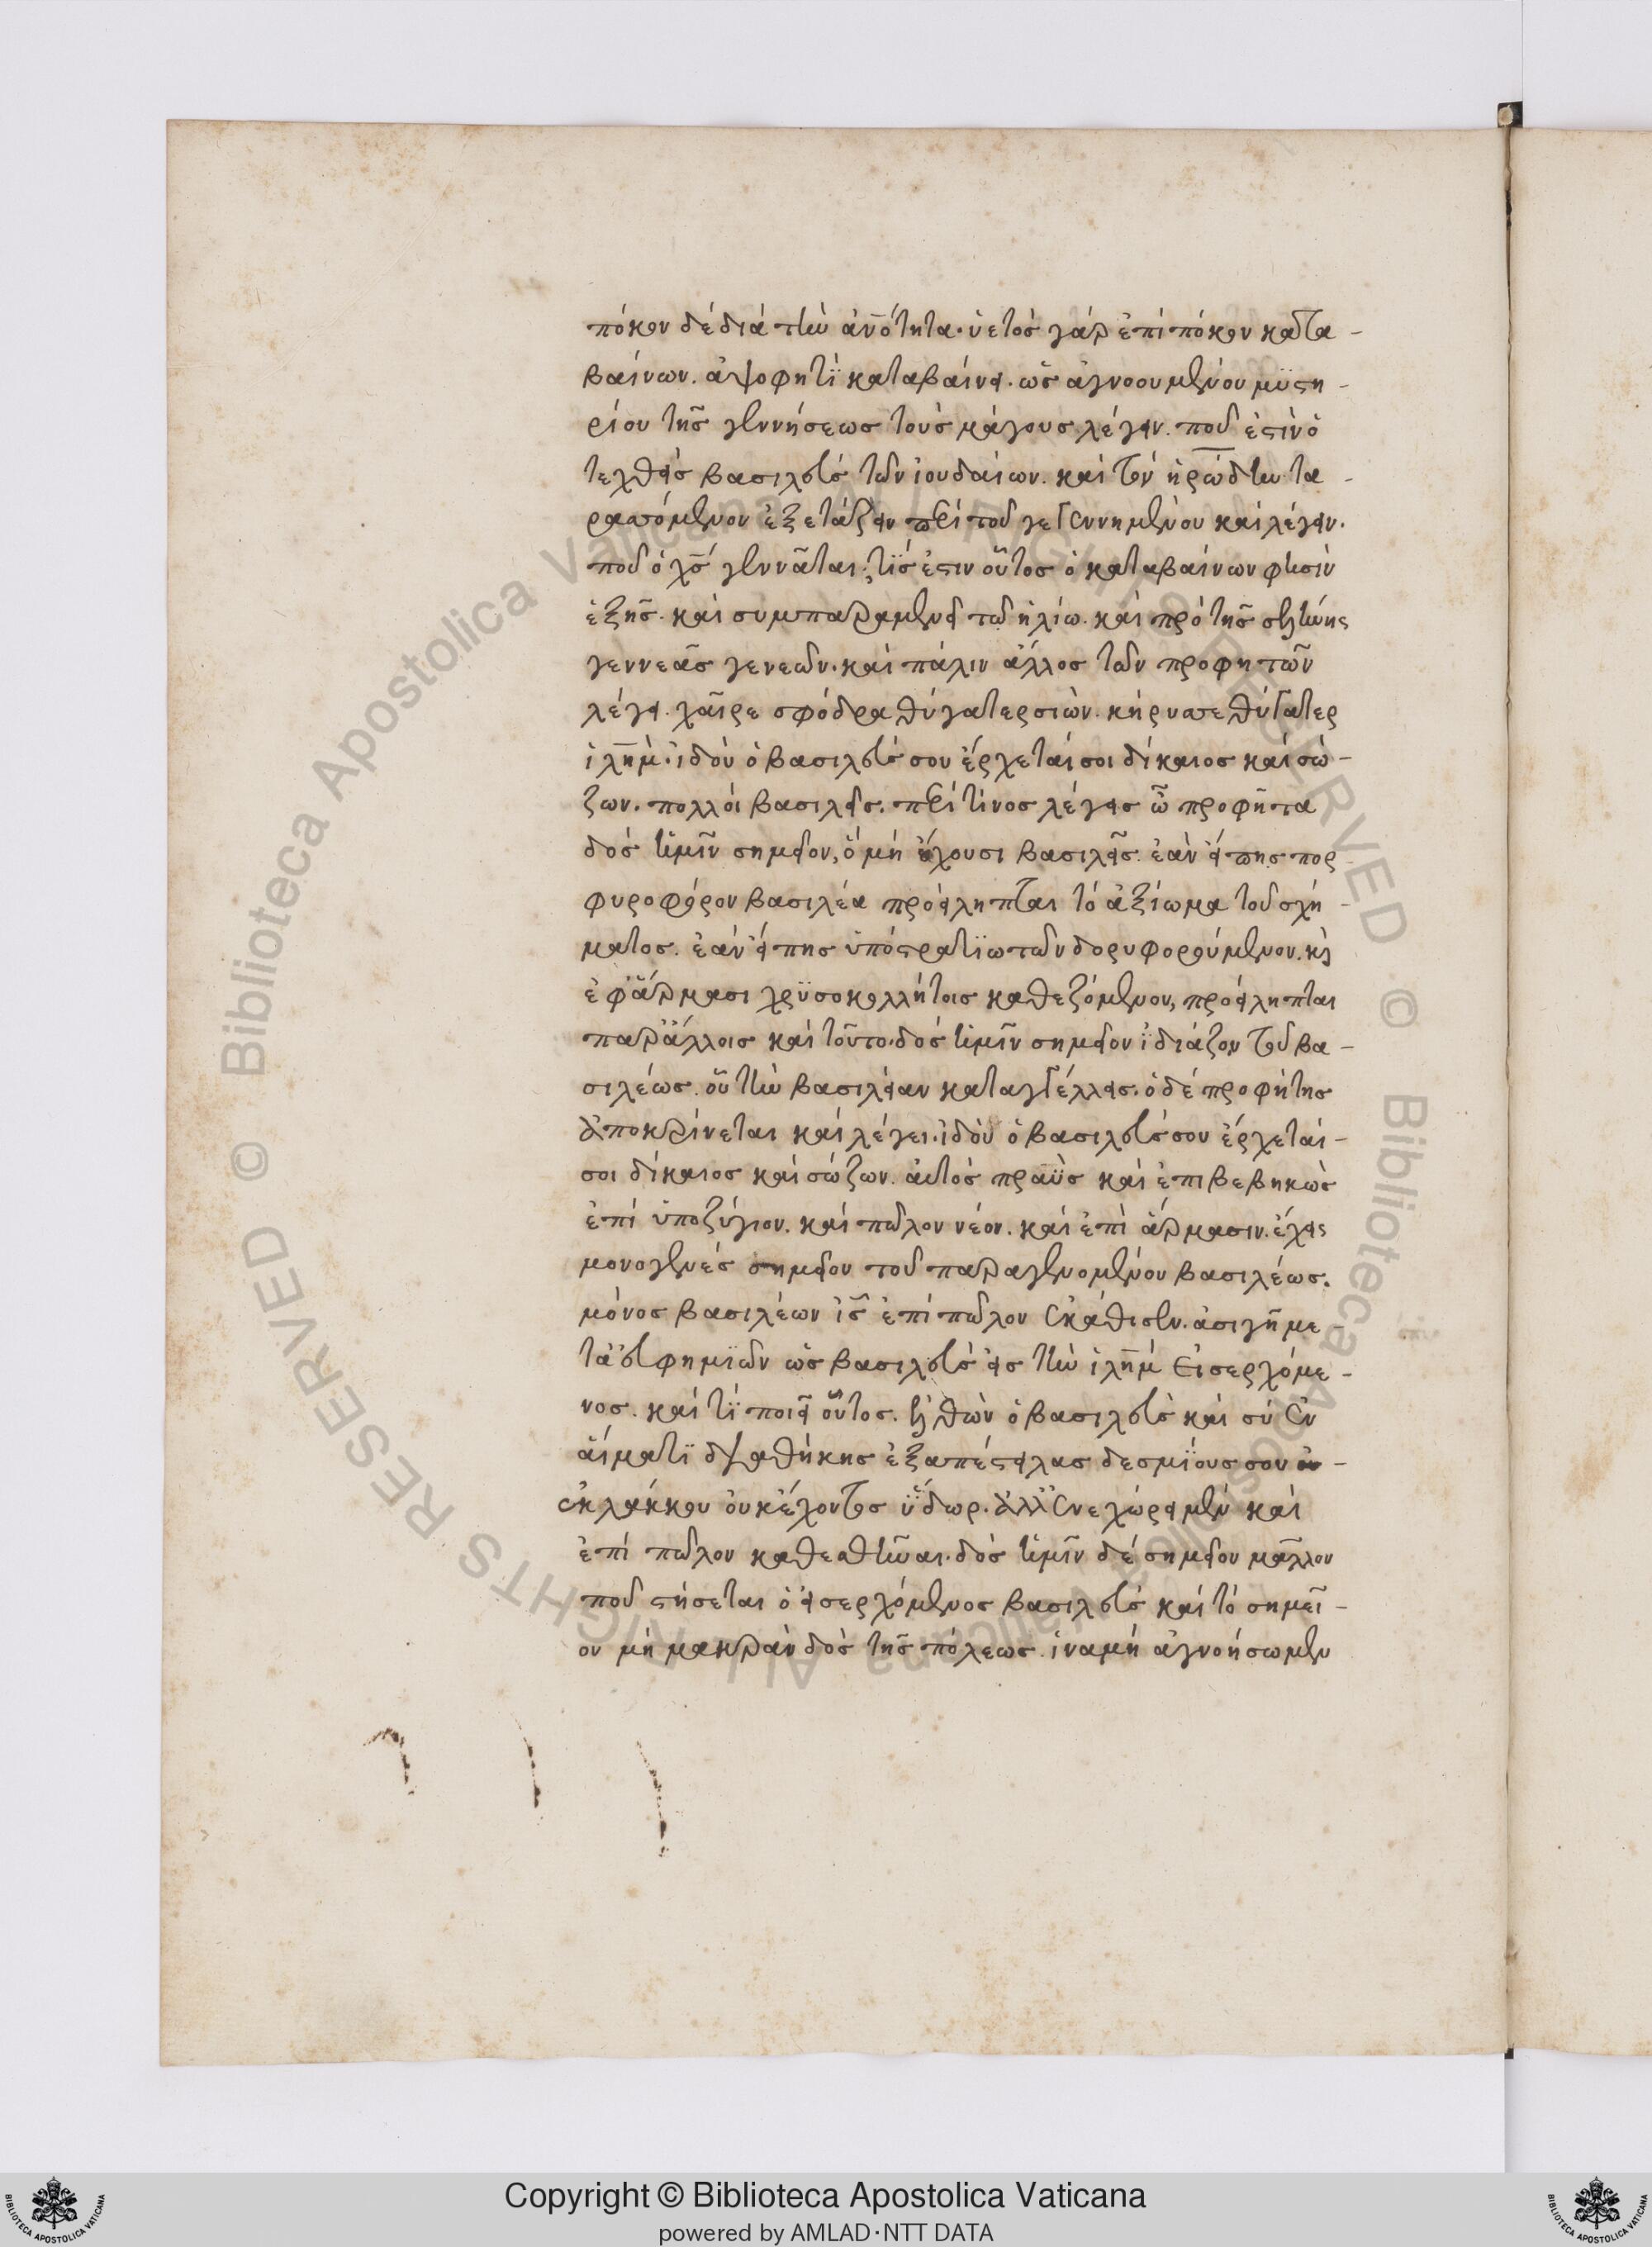 πόκον δὲ διὰ τὴν ἀνότητα· ὑετὸς γὰρ ἐπὶ πόκον κατα-
βαίνων. ἀψοφητὶ καταβαίνει. ὡς ἀγνοουμένου μυστη-
ρίου τῆς γεννήσεως τοὺς μάγους λέγειν. ποῦ ἐστὶν ὁ
τεχθεὶς βασιλεὺς τῶν ἰουδαίων. καὶ τὸν ἡρώδην τα-
ρασσόμενον ἐξετάζειν περὶ τοῦ γεγεννημένου καὶ λέγειν.
ποῦ ὁ χς γεννᾶται; τίς ἐστιν οὗτος ὁ καταβαίνων φησὶν
ἑξῆς. καὶ συμπαραμενεῖ τῶ ἡλίω. καὶ πρὸ τῆς σελήνης
γεννεᾶς γενεῶν. καὶ πάλιν ἄλλος τῶν προφητῶν
λέγει. χαῖρε σφόδρα θύγατερ σιών. κήρυσσε θύγατερ
ἱλημ. ἰδοὺ ὁ βασιλεύς σου ἔρχεταί σοι δίκαιος καὶ σώ-
ζων. πολλοὶ βασιλεῖς. περὶ τίνος λέγεις ὦ προφῆτα
δὸς ἡμῖν σημεῖον, ὃ μὴ ἔχουσι βασιλεῖς. ἐὰν εἴπης πορ-
φυροφόρον βασιλέα προείληπται τὸ ἀξίωμα τοῦ σχή-
ματος. ἐὰν εἴπης ὑπὸ στρατιωτῶν δορυφορούμενον. κὶ
ἐφ' ἅρμασι χρυσοκολλήτοις καθεζόμενον, προείληπται
παρ' ἄλλοις καὶ τοῦτο. δὸς ἡμῖν σημεῖον ἰδιάζον τοῦ βα-
σιλέως. οὗ τὴν βασιλείαν καταγγέλλεις. ὁ δὲ προφήτης
ἀποκρίνεται καὶ λέγει. ἰδοὺ ὁ βασιλεύς σου ἔρχεταί-
σοι δίκαιος καὶ σώζων. αὐτὸς πραῢς καὶ ἐπιβεβηκὼς
ἐπὶ ὑποζύγιον. καὶ πῶλον νέον. καὶ ἐπὶ ἅρμασιν. ἔχεις
μονογενὲς σημεῖον τοῦ παραγενομένου βασιλέως.
μόνος βασιλέων ις ἐπὶ πῶλον ἐκάθισεν. ἀσιγῆ με-
τὰ εὐφημιῶν ὡς βασιλεὺς εἰς τὴν ἱλημ εἰσερχόμε-
νος. καὶ τί ποιεῖ οὗτος. ἐλθὼν ὁ βασιλεὺς καὶ σὺ ἐν
αἵματι διαθήκης ἐξαπέστειλας δεσμίους σου
ἐκ λάκκου οὐκ ἔχοντος ὕδωρ. ἀλλ' ἐνεχώρει μὲν καὶ
ἐπὶ πῶλον καθεσθῆναι. δὸς ἡμῖν δὲ σημεῖον μᾶλλον
ποῦ στήσεται ὁ εἰσερχόμενος βασιλεὺς καὶ τὸ σημεῖ-
ον μὴ μακρὰν δὸς τῆς πόλεως. ἵνα μὴ ἀγνοήσωμεν
Copyright © Biblioteca Apostolica Vaticana
powered by AMLAD·NTT DATA